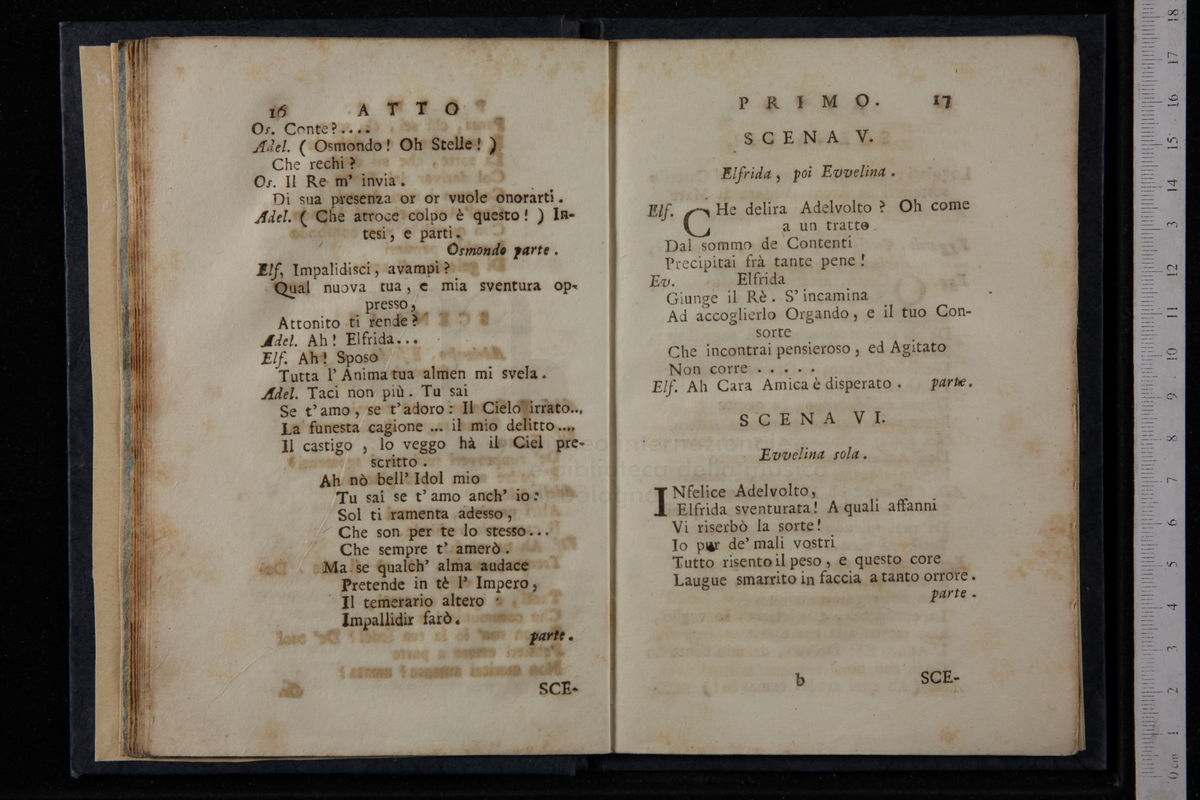 16 ATTO
Os. Conte?....
Adel. ( Osmondo! Oh Stelle! )
Che rechi?
Os. Il Re m' invia.
Di sua presenza or or vuole onorarti.
Adel. ( Che atroce colpo è questo! ) In-
tesi, e parti.
Osmondo parte.
Elf, Impalidisci, avampi?
Qual nuova tua, e mia sventura op-
presso,
Attonito ti rende?
Adel. Ah! Elfrida...
Elf. Ah! Sposo
Tutta l' Anima tua almen mi svela.
Adel. Taci non più. Tu sai
Se t' amo, se t' adoro: Il Cielo irrato...
La funesta cagione ... il mio delitto....
Il castigo, lo veggo hà il Ciel pre-
scritto.
Ah nò bell' Idol mio
Tu sai se t' amo anch' io:
Sol ti ramenta adesso,
Che son per te lo stesso...
Che sempre t' amerò.
Ma se qualch' alma audace
Pretende in tè l' Impero,
Il temerario altero
Impallidir farò.
parte.
SCE-
PRIMO. 17
SCENA V.
Elfrida, poi Evvelina.
Elf. CHe delira Adelvolto? Oh come
a un tratto
Dal sommo de Contenti
Precipitai frà tante pene!
Ev. Elfrida
Giunge il Rè. S' incamina
Ad accoglierlo Orgando, e il tuo Con-
sorte
Che incontrai pensieroso, ed Agitato
Non corre . . . . .
Elf. Ah Cara Amica è disperato. parte.
SCENA VI.
Evvelina sola.
INfelice Adelvolto,
Elfrida sventurata! A quali affanni
Vi riserbò la sorte!
Io pur de' mali vostri
Tutto risento il peso, e questo core
Laugue smarrito in faccia a tanto orrore.
parte.
b SCE-